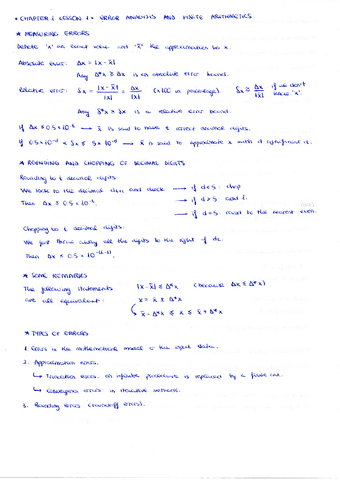 * CHAPTER 1 LESSON 1 : ERROR ANALYSIS AND FINITE ARITHMETICS
* MEASURING ERRORS
Denote 'x' an exact value and 'x̄' the approximation to x.
Absolute error: Δx = |x - x̄|
Any Δ*x ≥ Δx is an absolute error bound.
Relative error: δx = |x - x̄| / |x| = Δx / |x| (×100 in percentage) δx ≅ Δx / |x̄| if we don't know 'x'.
Any δ*x ≥ δx is a relative error bound.
if Δx ≤ 0.5 × 10⁻ᵗ → x̄ is said to have t correct decimal digits.
if δx ≤ → x̄ is said to approximate x with significant
* ROUNDING AND CHOPPING OF DECIMAL DIGITS
Rounding to t decimal digits:
We look to the decimal and check → if d < 5 : chop
Then Δx ≤ 0.5 × 10⁻ᵗ. → if d > 5 : add 1.
→ if d = 5 : round to the nearest even.
Chopping to t decimal digits:
We just throw away all the digits to the right of
Then Δx ≤
* SOME REMARKS
The following statements |x - x̄| ≤ Δ*x (because Δx ≤ Δ*x)
are all equivalent: x = x̄ ± Δ*x
x̄ - Δ*x ≤ x ≤ x̄ + Δ*x
* TYPES OF ERRORS
1. Errors in the mathematical model or the input data.
2. Approximation errors.
↳ Truncation errors: an infinite process is replaced by a finite one.
↳ Convergence errors: in iterative methods.
3. Rounding errors (roundoff errors).